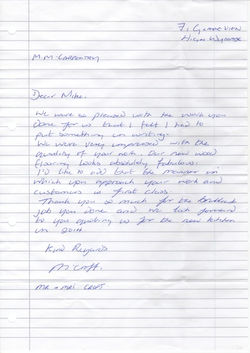 7, Grande View
High Wycombe
M.M. Carpentry
Dear Mike,
We were so pleased with the work you
done for us that I felt I had to
put something in writing.
We were very impressed with the
quality of your work. Our new wood
flooring looks absolutely fabulous.
I'd like to add that the manner in
which you approach your work and
customers is first class.
Thank you so much for the brilliant
job you done and we look forward
to you quoting us for the new kitchen
in 2014.
Kind Regards
M. Croft.
MR & MRS CROFT